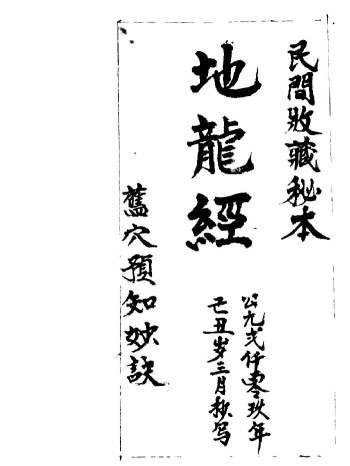 民間收藏秘本
地龍經
公元貳仟零玖年
己丑岁三月抄写
舊穴預知妙訣